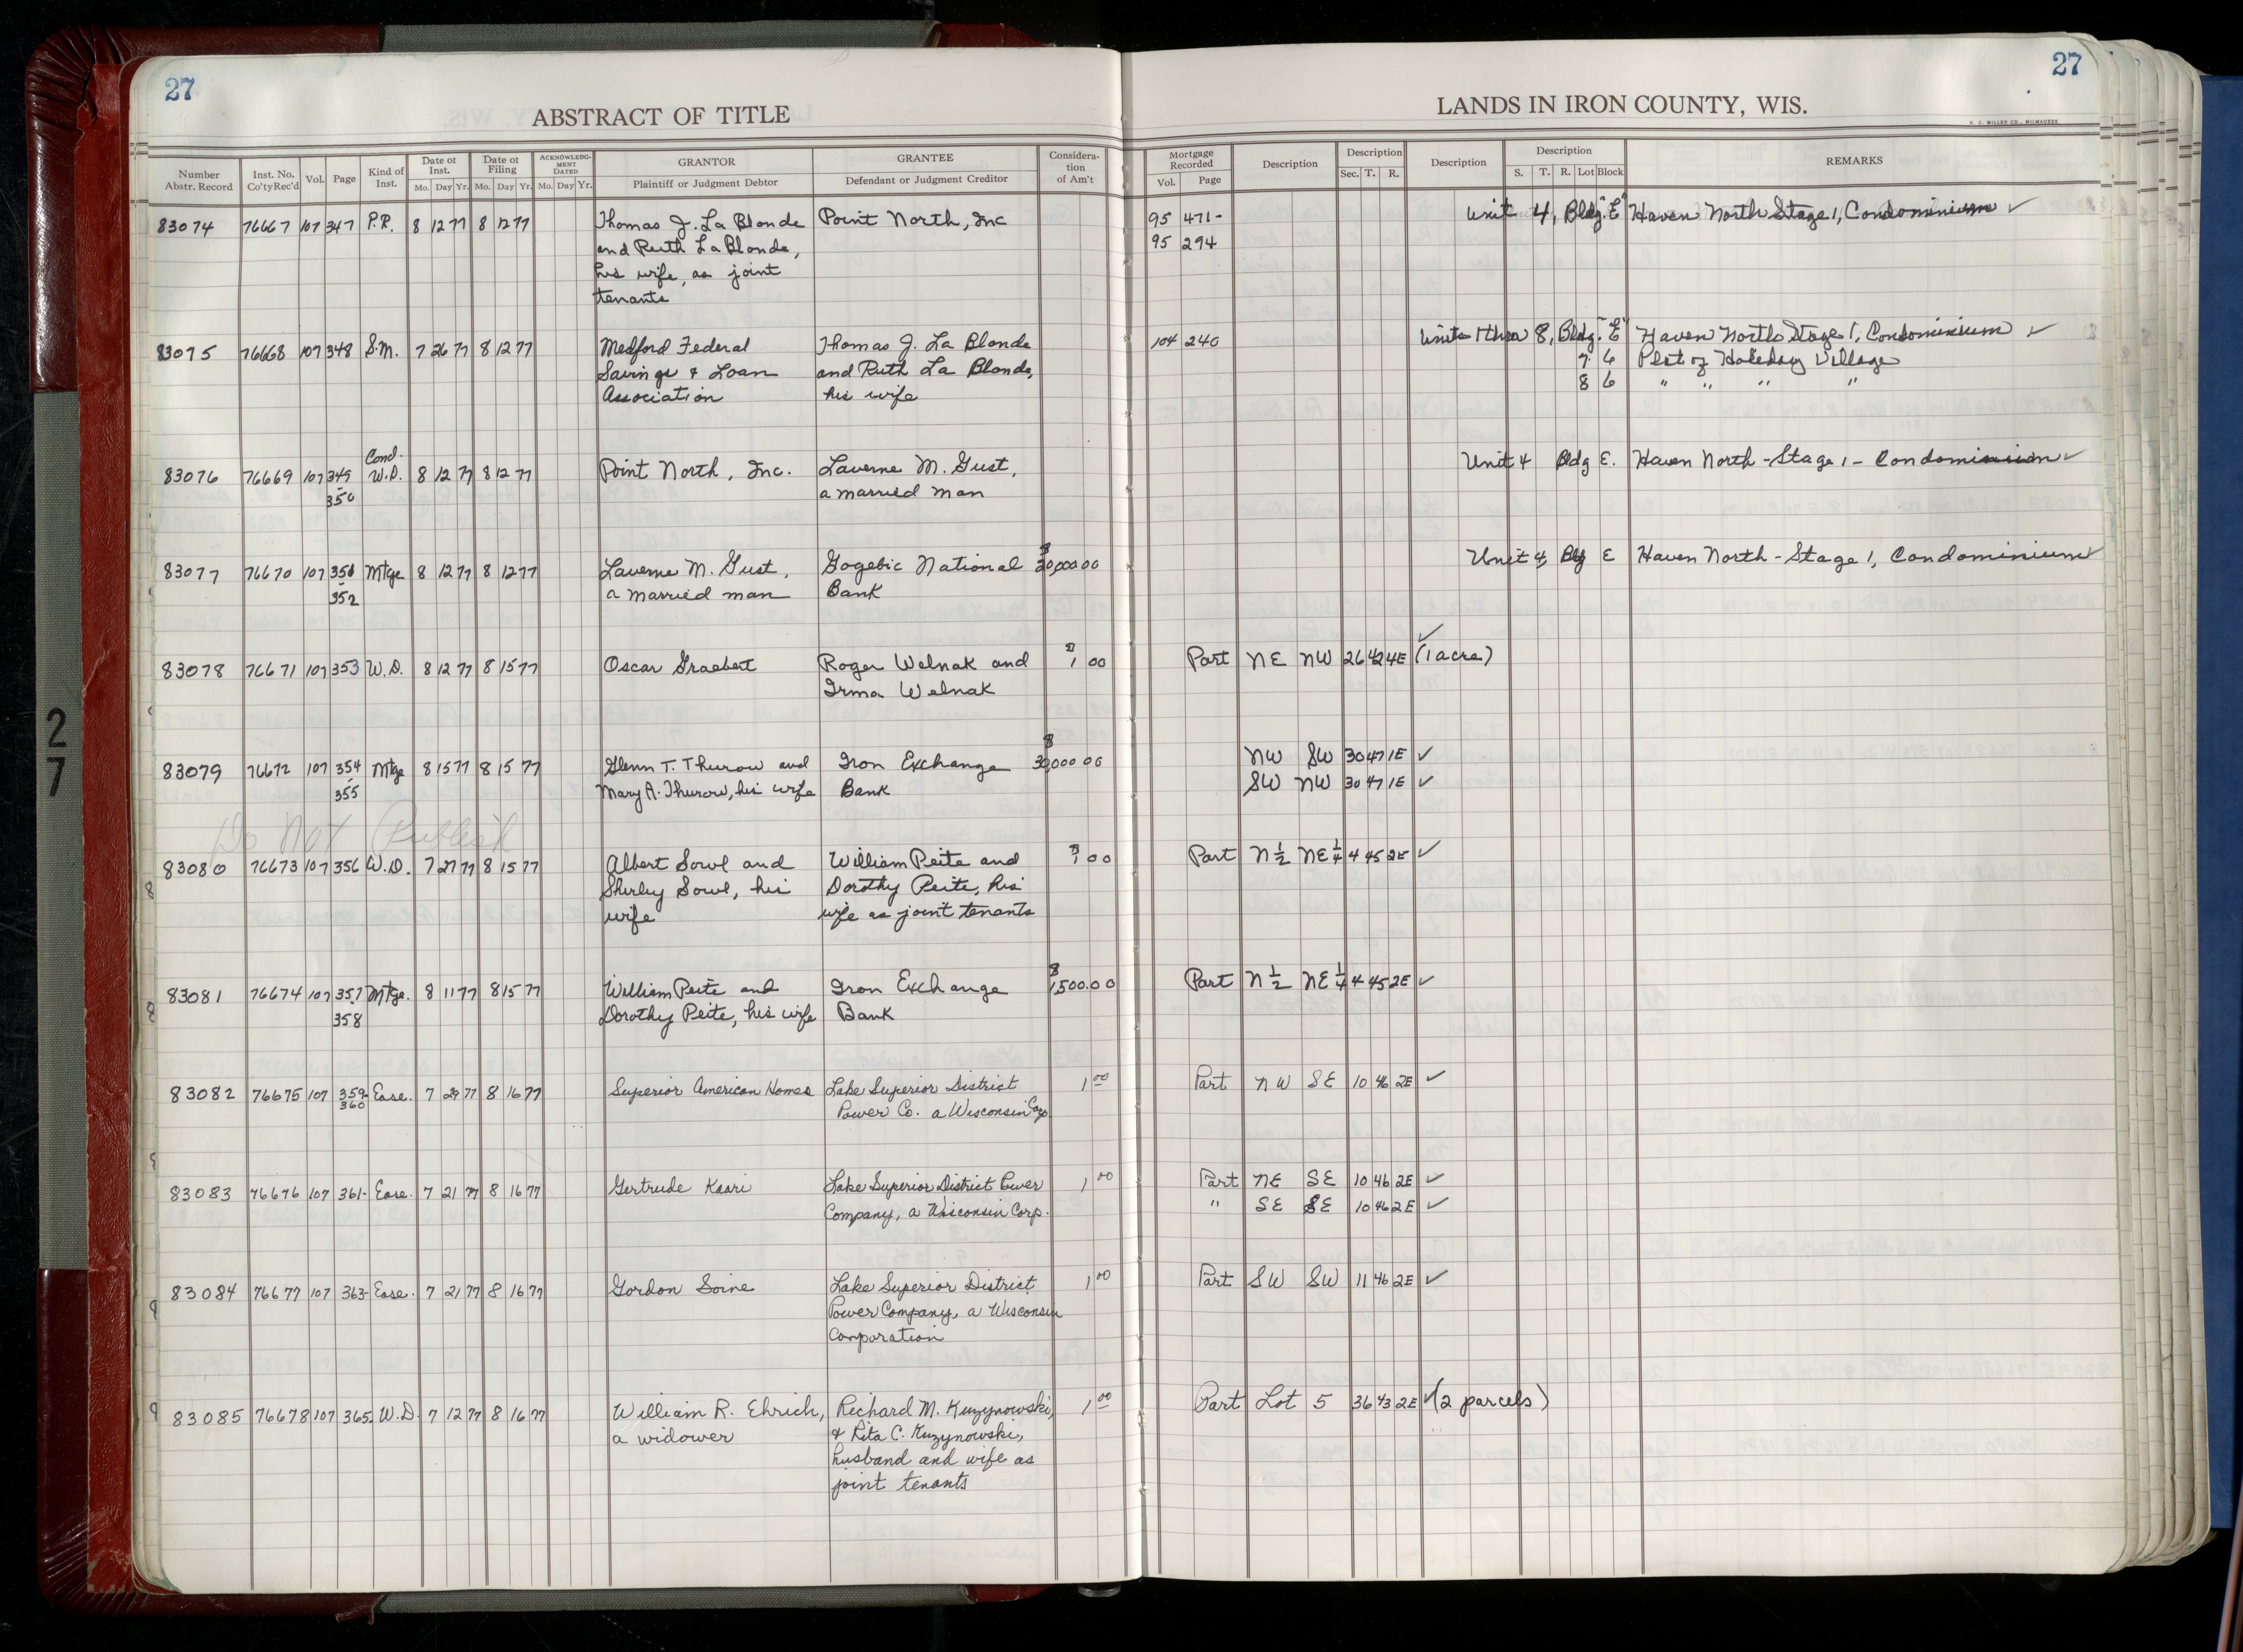 27
27
ABSTRACT OF TITLE
LANDS IN IRON COUNTY, WIS.
H. C. MILLER CO., MILWAUKEE
Number Abstr. Record Inst. No. Co'ty Rec'd Vol. Page Kind of Inst. Date of Inst. Mo. Day Yr. Date of Filing Mo. Day Yr. ACKNOWLEDGMENT DATED Mo. Day Yr. GRANTOR Plaintiff or Judgment Debtor GRANTEE Defendant or Judgment Creditor Consideration of Am't Mortgage Recorded Vol. Page Description Description Sec. T. R. Description Description S. T. R. Lot Block REMARKS
83074 76667 107 347 P.R. 8 12 77 8 12 77 Thomas J. La Blonde Point North, Inc 95 471- Unit 4, Bldg. "E" Haven North Stage 1, Condominium ✓
and Ruth La Blonde, 95 294
his wife, as joint
tenants
83075 76668 107 348 S.M. 7 26 77 8 12 77 Medford Federal Thomas J. La Blonde 104 240 Units 1 thru 8, Bldg. "E" Haven North Stage 1, Condominium ✓
Savings & Loan and Ruth La Blonde, 7 6 Plat of Holiday Village
Association his wife 8 6 " " " "
Cond.
83076 76669 107 349 W.D. 8 12 77 8 12 77 Point North, Inc. Laverne M. Gust, Unit 4 Bldg E. Haven North - Stage 1 - Condominium ✓
- 350 a married man
83077 76670 107 351 Mtge 8 12 77 8 12 77 Laverne M. Gust, Gogebic National $20,000 00 Unit 4, Bldg E Haven North - Stage 1, Condominium ✓
- 352 a married man Bank
83078 76671 107 353 W.D. 8 12 77 8 15 77 Oscar Graebert Roger Welnak and $1 00 Part NE NW 26 42 4E ✓ (1 acre)
Irma Welnak
83079 76672 107 354 Mtge 8 15 77 8 15 77 Glenn T. Thurow and Iron Exchange $30,000 00 NW SW 30 47 1E ✓
- 355 Mary A. Thurow, his wife Bank SW NW 30 47 1E ✓
Do Not Publish
83080 76673 107 356 W.D. 7 27 77 8 15 77 Albert Sowl and William Peite and $1 00 Part N½ NE¼ 4 45 2E ✓
Shirley Sowl, his Dorothy Peite, his
wife wife as joint tenants
83081 76674 107 357 Mtge. 8 11 77 8 15 77 William Peite and Iron Exchange $1,500.00 Part N½ NE¼ 4 45 2E ✓
- 358 Dorothy Peite, his wife Bank
83082 76675 107 359- Ease. 7 29 77 8 16 77 Superior American Homes Lake Superior District 1 00 Part NW SE 10 46 2E ✓
360 Power Co. a Wisconsin Corp.
83083 76676 107 361- Ease. 7 21 77 8 16 77 Gertrude Kaari Lake Superior District Power 1 00 Part NE SE 10 46 2E ✓
Company, a Wisconsin Corp. " SE SE 10 46 2E ✓
83084 76677 107 363- Ease. 7 21 77 8 16 77 Gordon Soine Lake Superior District 1 00 Part SW SW 11 46 2E ✓
Power Company, a Wisconsin
Corporation
83085 76678 107 365- W.D. 7 12 77 8 16 77 William R. Ehrich, Richard M. Kuzynowski, 1 00 Part Lot 5 36 43 2E ✓ (2 parcels)
a widower & Rita C. Kuzynowski,
husband and wife as
joint tenants
27